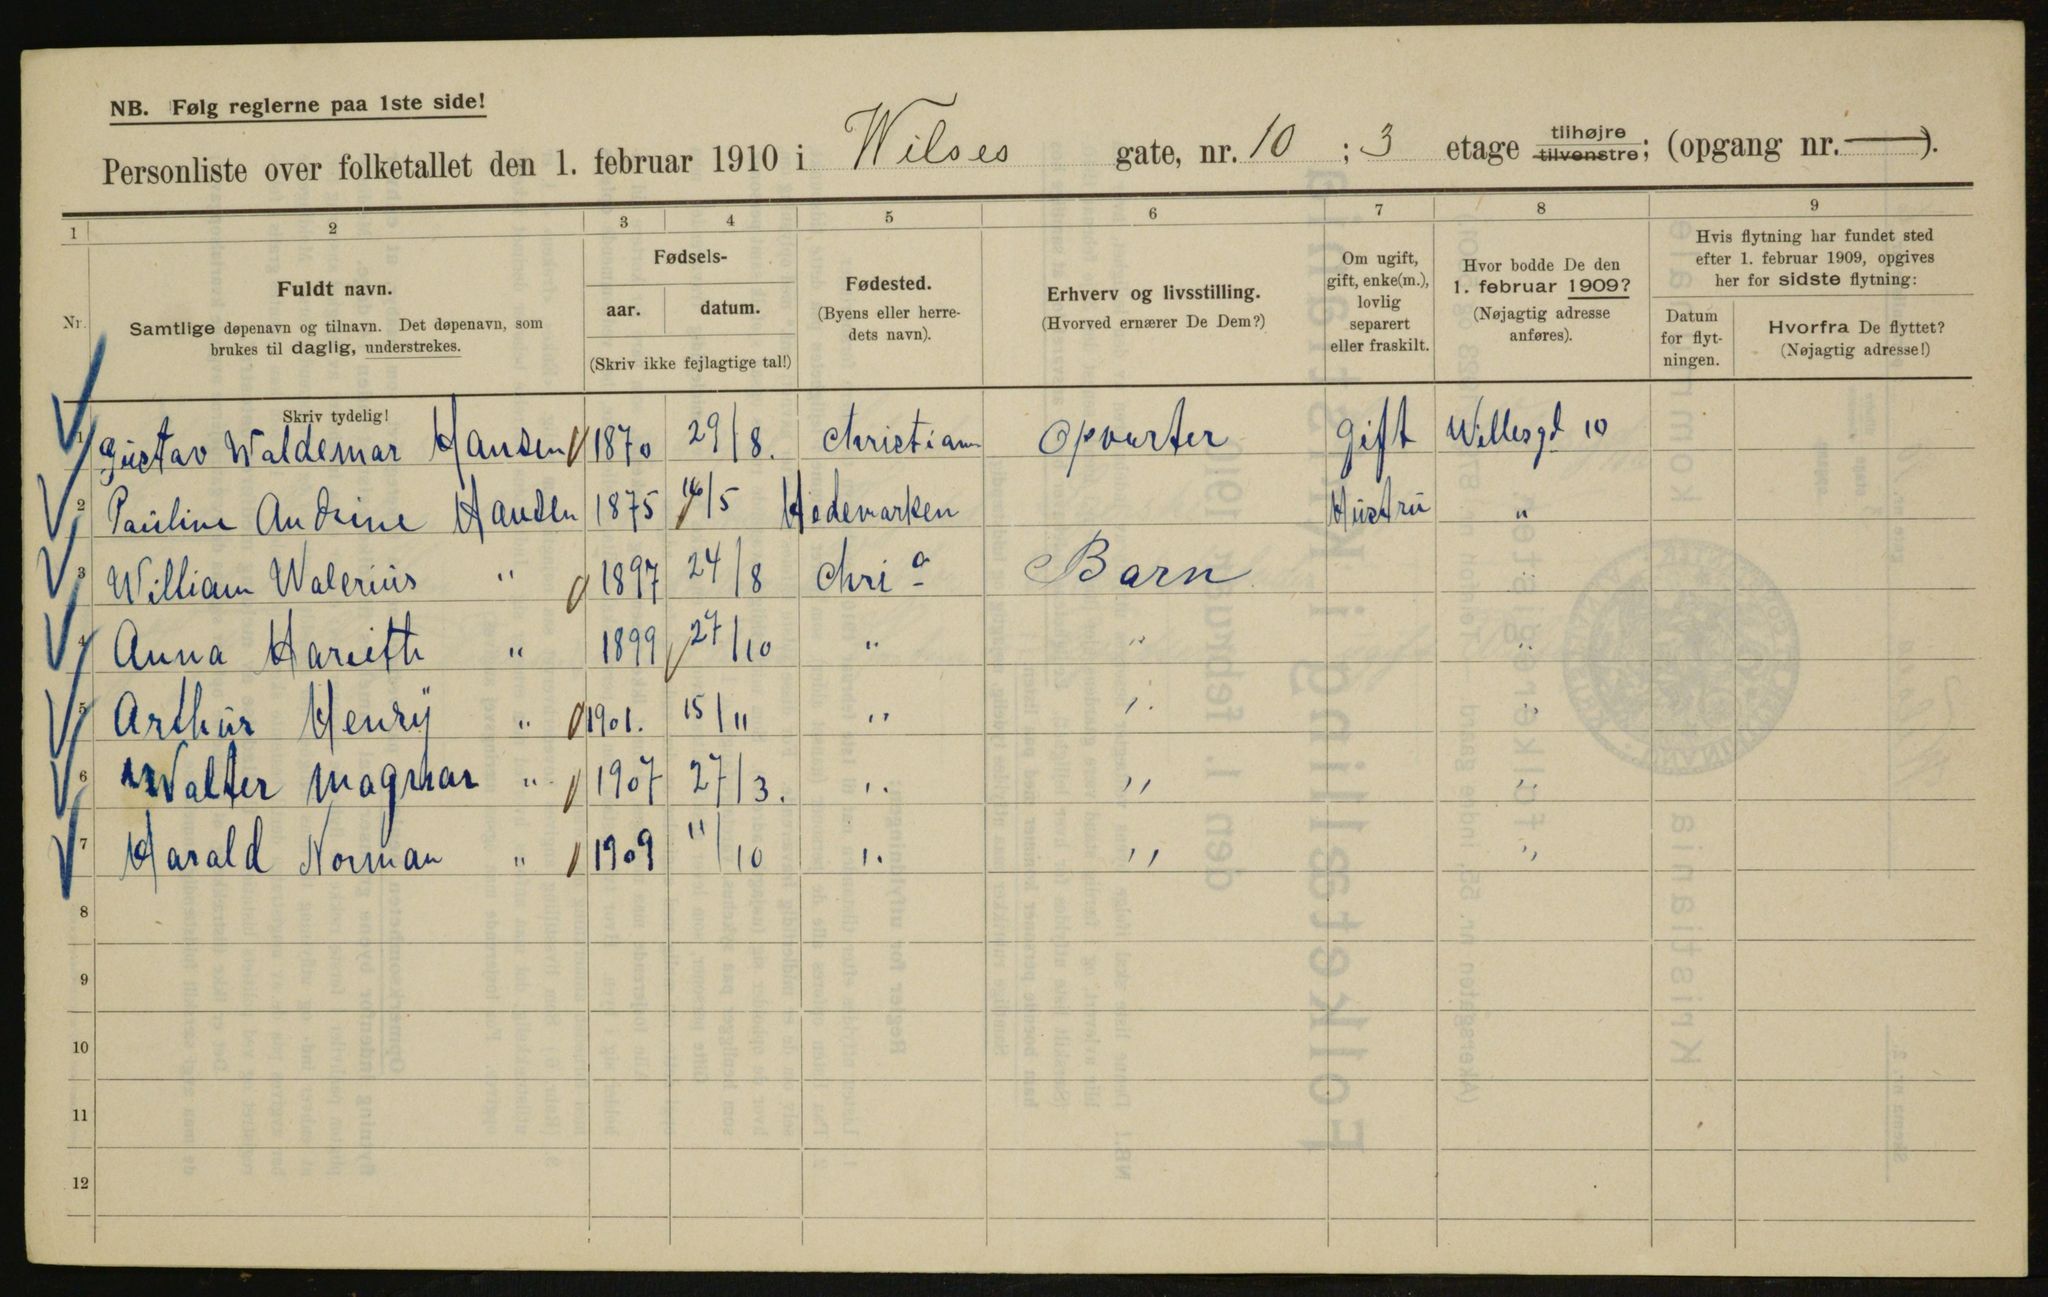 NB. Følg reglerne paa 1ste side!
Personliste over folketallet den 1. februar 1910 i Wilses gate, nr. 10 ; 3 etage tilhøjre tilvenstre; (opgang nr. — ).
1 2 3 4 5 6 7 8 9
Nr. Fuldt navn. Samtlige døpenavn og tilnavn. Det døpenavn, som brukes til daglig, understrekes. Skriv tydelig!
Fødsels- aar. datum. (Skriv ikke fejlagtige tal!)
Fødested. (Byens eller herredets navn).
Erhverv og livsstilling. (Hvorved ernærer De Dem?)
Om ugift, gift, enke(m.), lovlig separert eller fraskilt.
Hvor bodde De den 1. februar 1909? (Nøjagtig adresse anføres).
Hvis flytning har fundet sted efter 1. februar 1909, opgives her for sidste flytning:
Datum for flytningen. Hvorfra De flyttet? (Nøjagtig adresse!)
1 Gustav Waldemar Hansen 1870 29/8. Christian Opvarter Gift Willesgd 10
2 Pauline Andrine Hansen 1875 /5 Hedemarken Hustru "
3 William Walerius " 1897 24/8 Chria Barn "
4 Anna Harieth " 1899 27/10 " " "
5 Arthur Henry " 1901. 15/11 " " "
6 Walter Magnar " 1907 27/3. " " "
7 Harald Norman " 1909 11/10 " " "
8
9
10
11
12